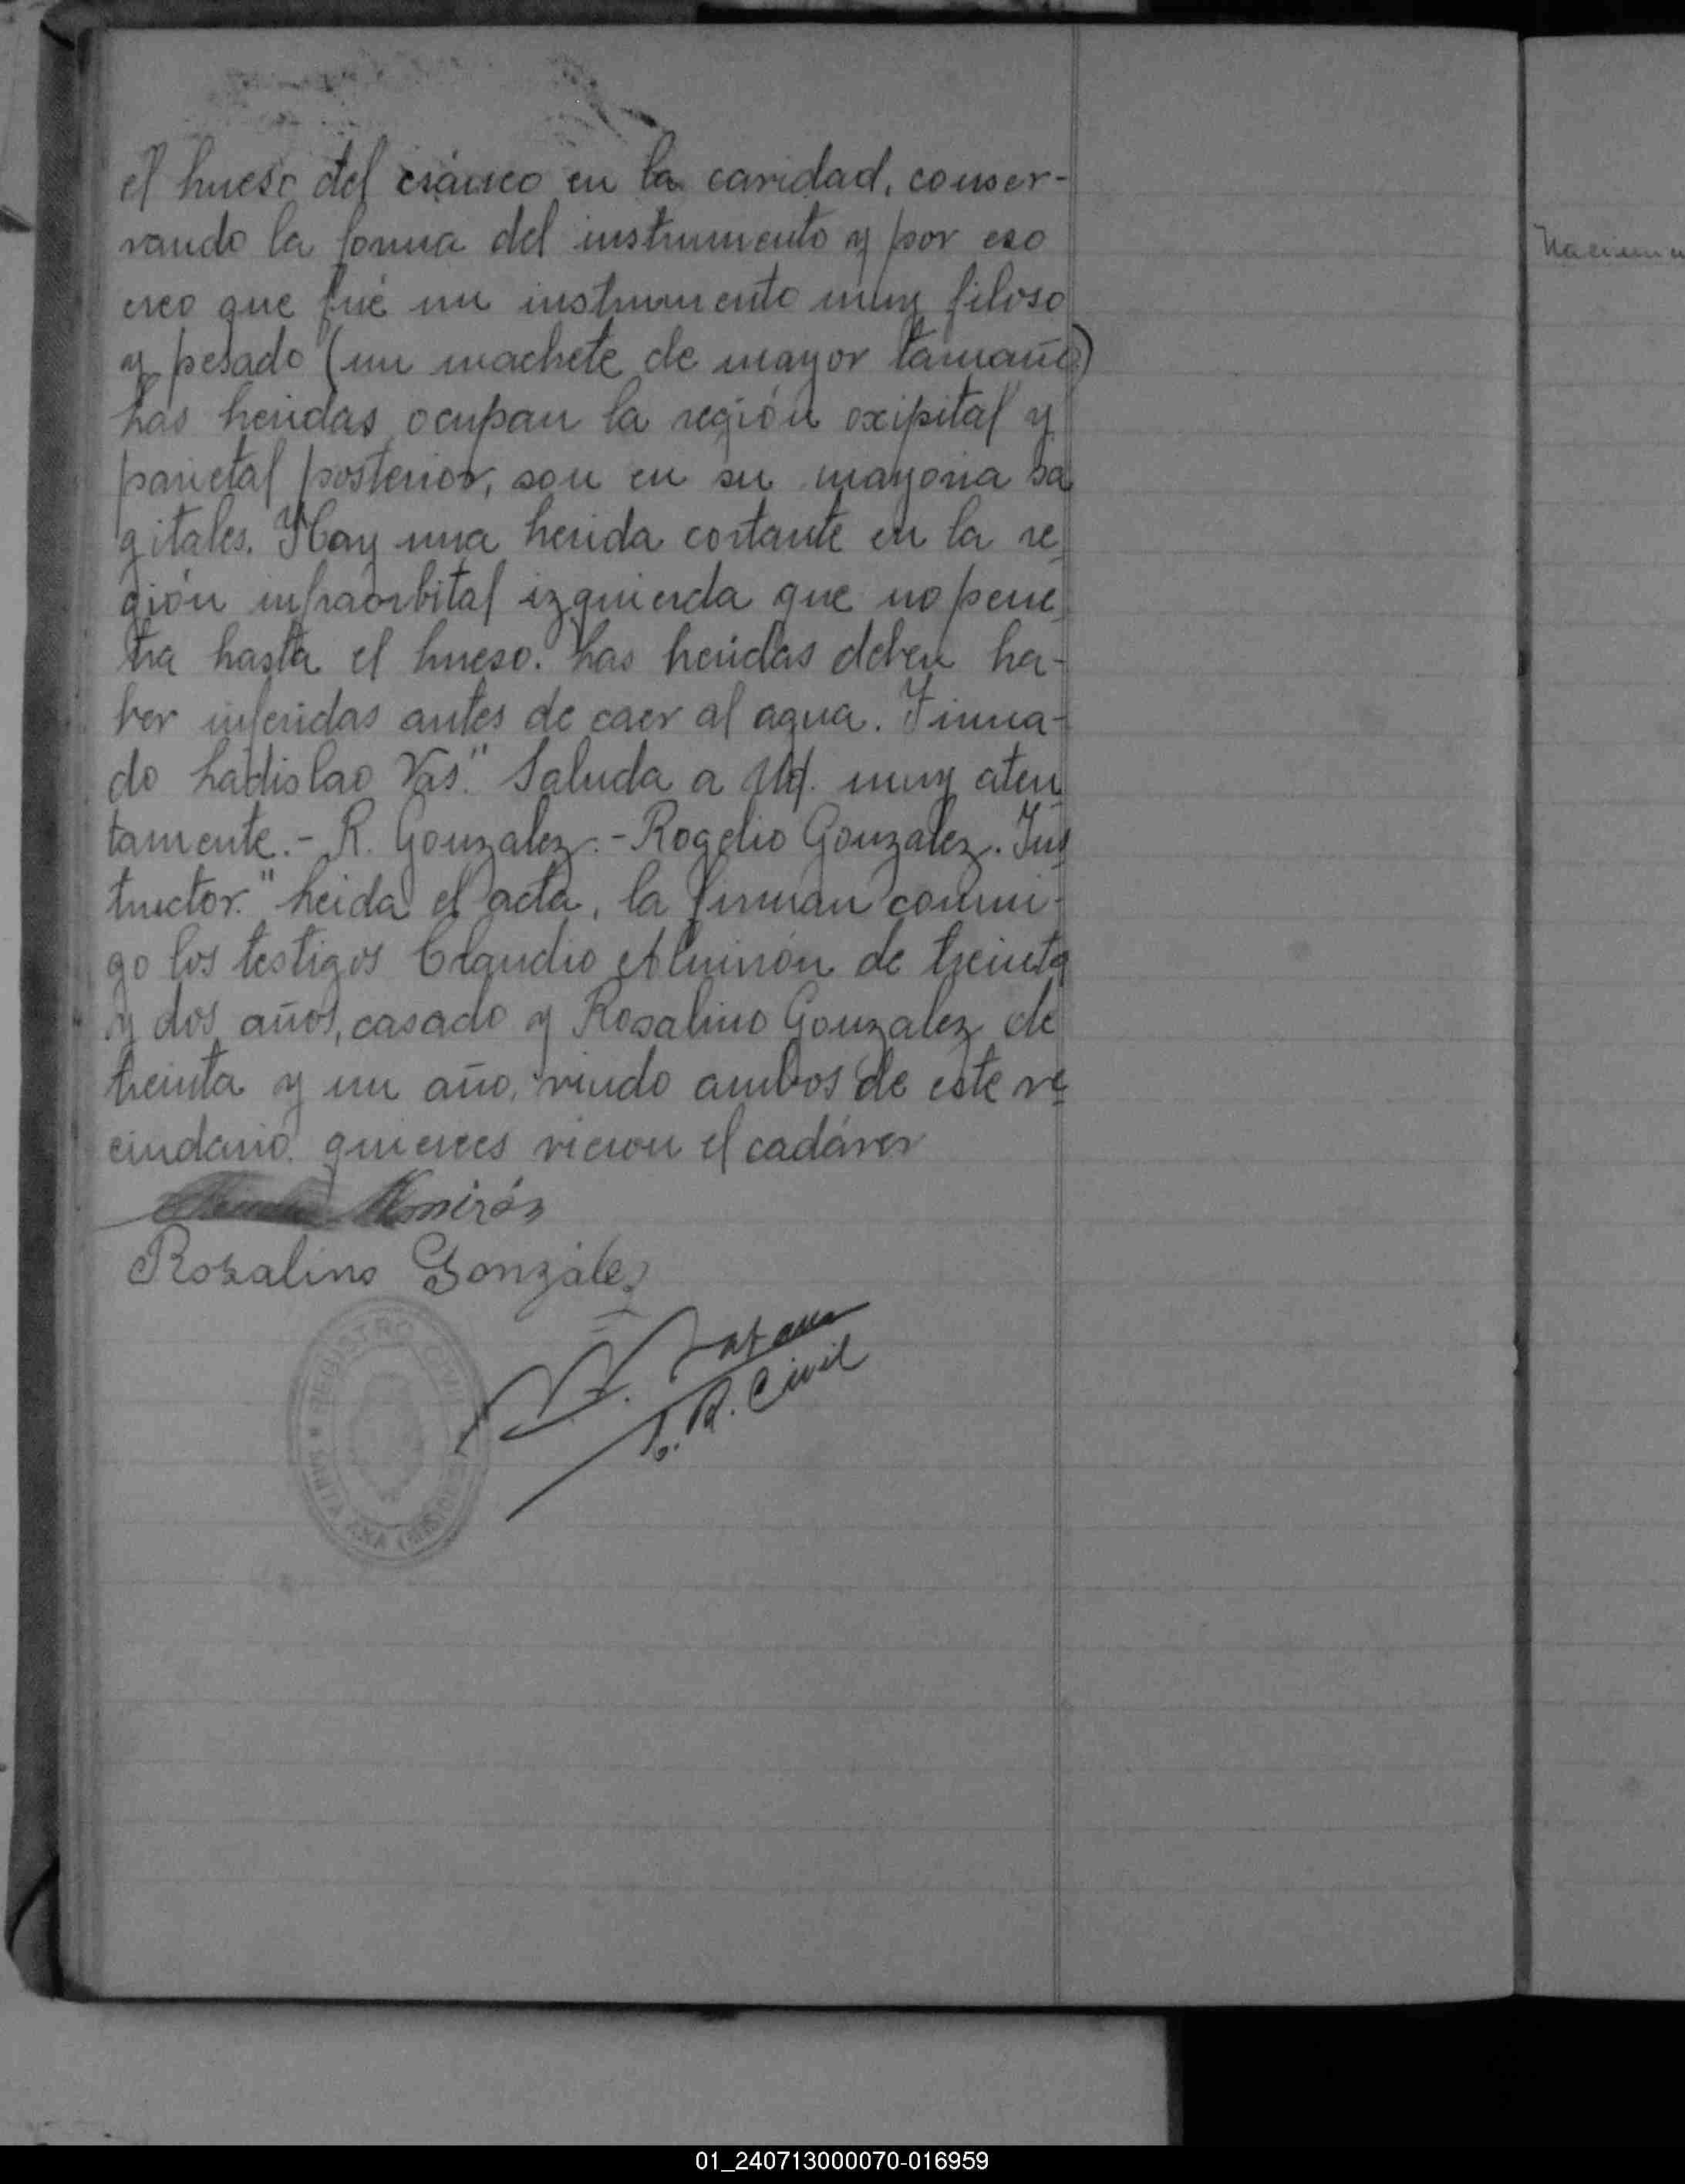 el hueso del cráneo en la cavidad, conser-
vando la forma del instrumento y por eso
creo que fué un instrumento muy filoso
y pesado (un machete de mayor tamaño)
Las heridas ocupan la región oxipital y
parietal posterior, son en su mayoria sa
gitales. Hay una herida cortante en la re
gión infraorbital izquierda que no pene
tra hasta el hueso. Las heridas deben ha-
ber inferidas antes de caer al agua. Firma-
do Ladislao Vas." Saluda a Ud. muy aten
tamente.- R. Gonzalez.- Rogelio Gonzalez. Ins
tructor." Leida el acta, la firman conmi-
go los testigos Claudio Almirón de treinta
y dos años, casado y Rosalino Gonzalez de
treinta y un año, viudo ambos de este ve
cindario. quienes vieron el cadáver
Almirón
Rosalino Gonzáles
R. Civil
REGISTRO CIVIL
SANTA ANA (MISIONES)
Nacimien
01_240713000070-016959